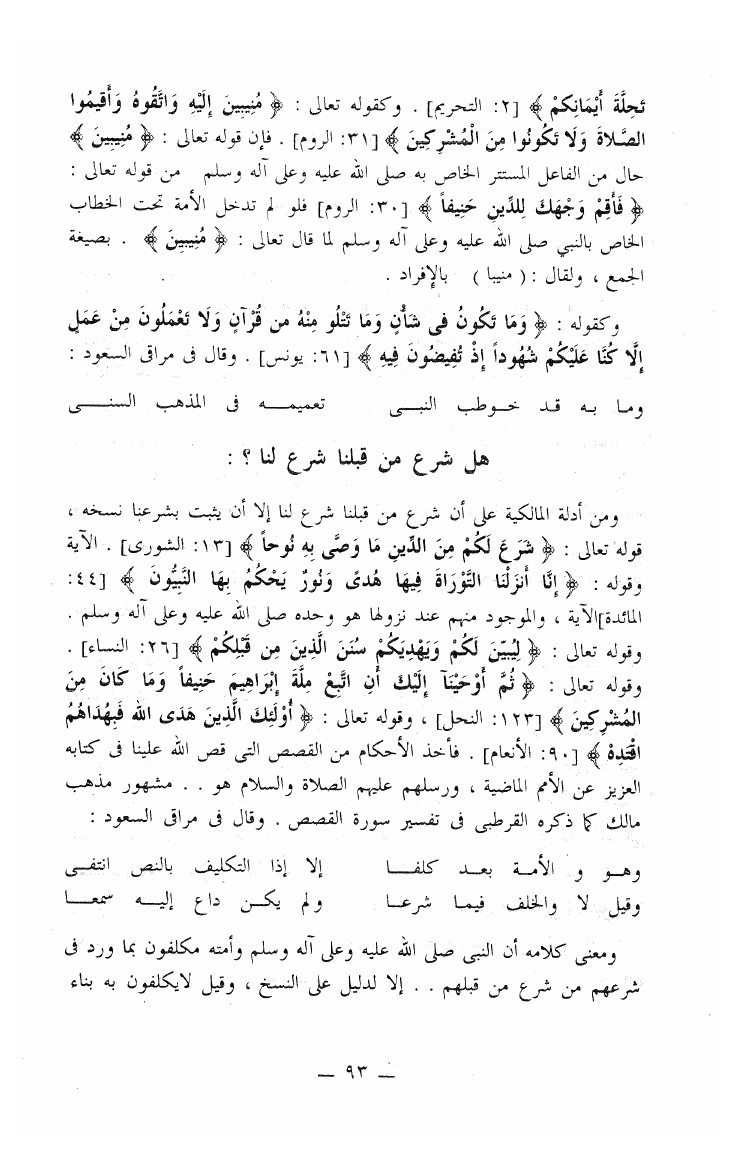 تَحِلَّةَ أَيْمَانِكُمْ ﴾ [٢: التحريم] . وكقوله تعالى : ﴿ مُنِيبِينَ إِلَيْهِ وَاتَّقُوهُ وَأَقِيمُوا
الصَّلَاةَ وَلَا تَكُونُوا مِنَ الْمُشْرِكِينَ ﴾ [٣١: الروم] . فإن قوله تعالى : ﴿ مُنِيبِينَ ﴾
حال من الفاعل المستتر الخاص به صلى الله عليه وعلى آله وسلم من قوله تعالى :
﴿ فَأَقِمْ وَجْهَكَ لِلدِّينِ حَنِيفاً ﴾ [٣٠: الروم] فلو لم تدخل الأمة تحت الخطاب
الخاص بالنبي صلى الله عليه وعلى آله وسلم لما قال تعالى : ﴿ مُنِيبِينَ ﴾ . بصيغة
الجمع ، ولقال : ( منيبا ) بالإفراد .
وكقوله : ﴿ وَمَا تَكُونُ فى شَأْنٍ وَمَا تَتْلُو مِنْهُ من قُرْآنٍ وَلَا تَعْمَلُونَ مِنْ عَمَلٍ
إِلَّا كُنَّا عَلَيْكُمْ شُهُوداً إِذْ تُفِيضُونَ فِيهِ ﴾ [٦١: يونس] . وقال فى مراقى السعود :
وما به قد خوطب النبى تعميمه فى المذهب السنى
هل شرع من قبلنا شرع لنا ؟ :
ومن أدلة المالكية على أن شرع من قبلنا شرع لنا إلا أن يثبت بشرعنا نسخه ،
قوله تعالى : ﴿ شَرَعَ لَكُمْ مِنَ الدِّينِ مَا وَصَّى بِهِ نُوحاً ﴾ [١٣: الشورى] . الآية
وقوله : ﴿ إِنَّا أَنزَلْنَا التَّوْرَاةَ فِيهَا هُدىً وَنُورٌ يَحْكُمُ بِهَا النَّبِيُّونَ ﴾ [٤٤:
المائدة]الآية ، والموجود منهم عند نزولها هو وحده صلى الله عليه وعلى آله وسلم .
وقوله تعالى : ﴿ لِيُبَيِّنَ لَكُمْ وَيَهْدِيَكُمْ سُنَنَ الَّذِينَ مِن قَبْلِكُمْ ﴾ [٢٦: النساء] .
وقوله تعالى : ﴿ ثُمَّ أَوْحَيْنَآ إِلَيْكَ أَنِ اتَّبِعْ مِلَّةَ إِبْرَاهِيمَ حَنِيفاً وَمَا كَانَ مِنَ
المُشْرِكِينَ ﴾ [١٢٣: النحل] ، وقوله تعالى : ﴿ أُوْلَئِكَ الَّذِينَ هَدَى الله فَبِهُدَاهُمُ
اقْتَدِهْ ﴾ [٩٠: الأنعام] . فأخذ الأحكام من القصص التى قص الله علينا فى كتابه
العزيز عن الأمم الماضية ، ورسلهم عليهم الصلاة والسلام هو . . مشهور مذهب
مالك كما ذكره القرطبى فى تفسير سورة القصص . وقال فى مراقى السعود :
وهو و الأمة بعد كلفا إلا إذا التكليف بالنص انتفى
وقيل لا والخلف فيما شرعا ولم يكن داع إليه سمعا
ومعنى كلامه أن النبى صلى الله عليه وعلى آله وسلم وأمته مكلفون بما ورد فى
شرعهم من شرع من قبلهم . . إلا لدليل على النسخ ، وقيل لايكلفون به بناء
— ٩٣ —